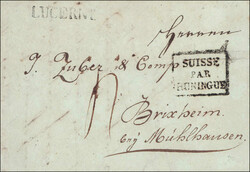 LUCERNE
Herren
J. Zuber & Comp
SUISSE
PAR
HUNINGUE
Brixheim.
bey Mühlhausen.